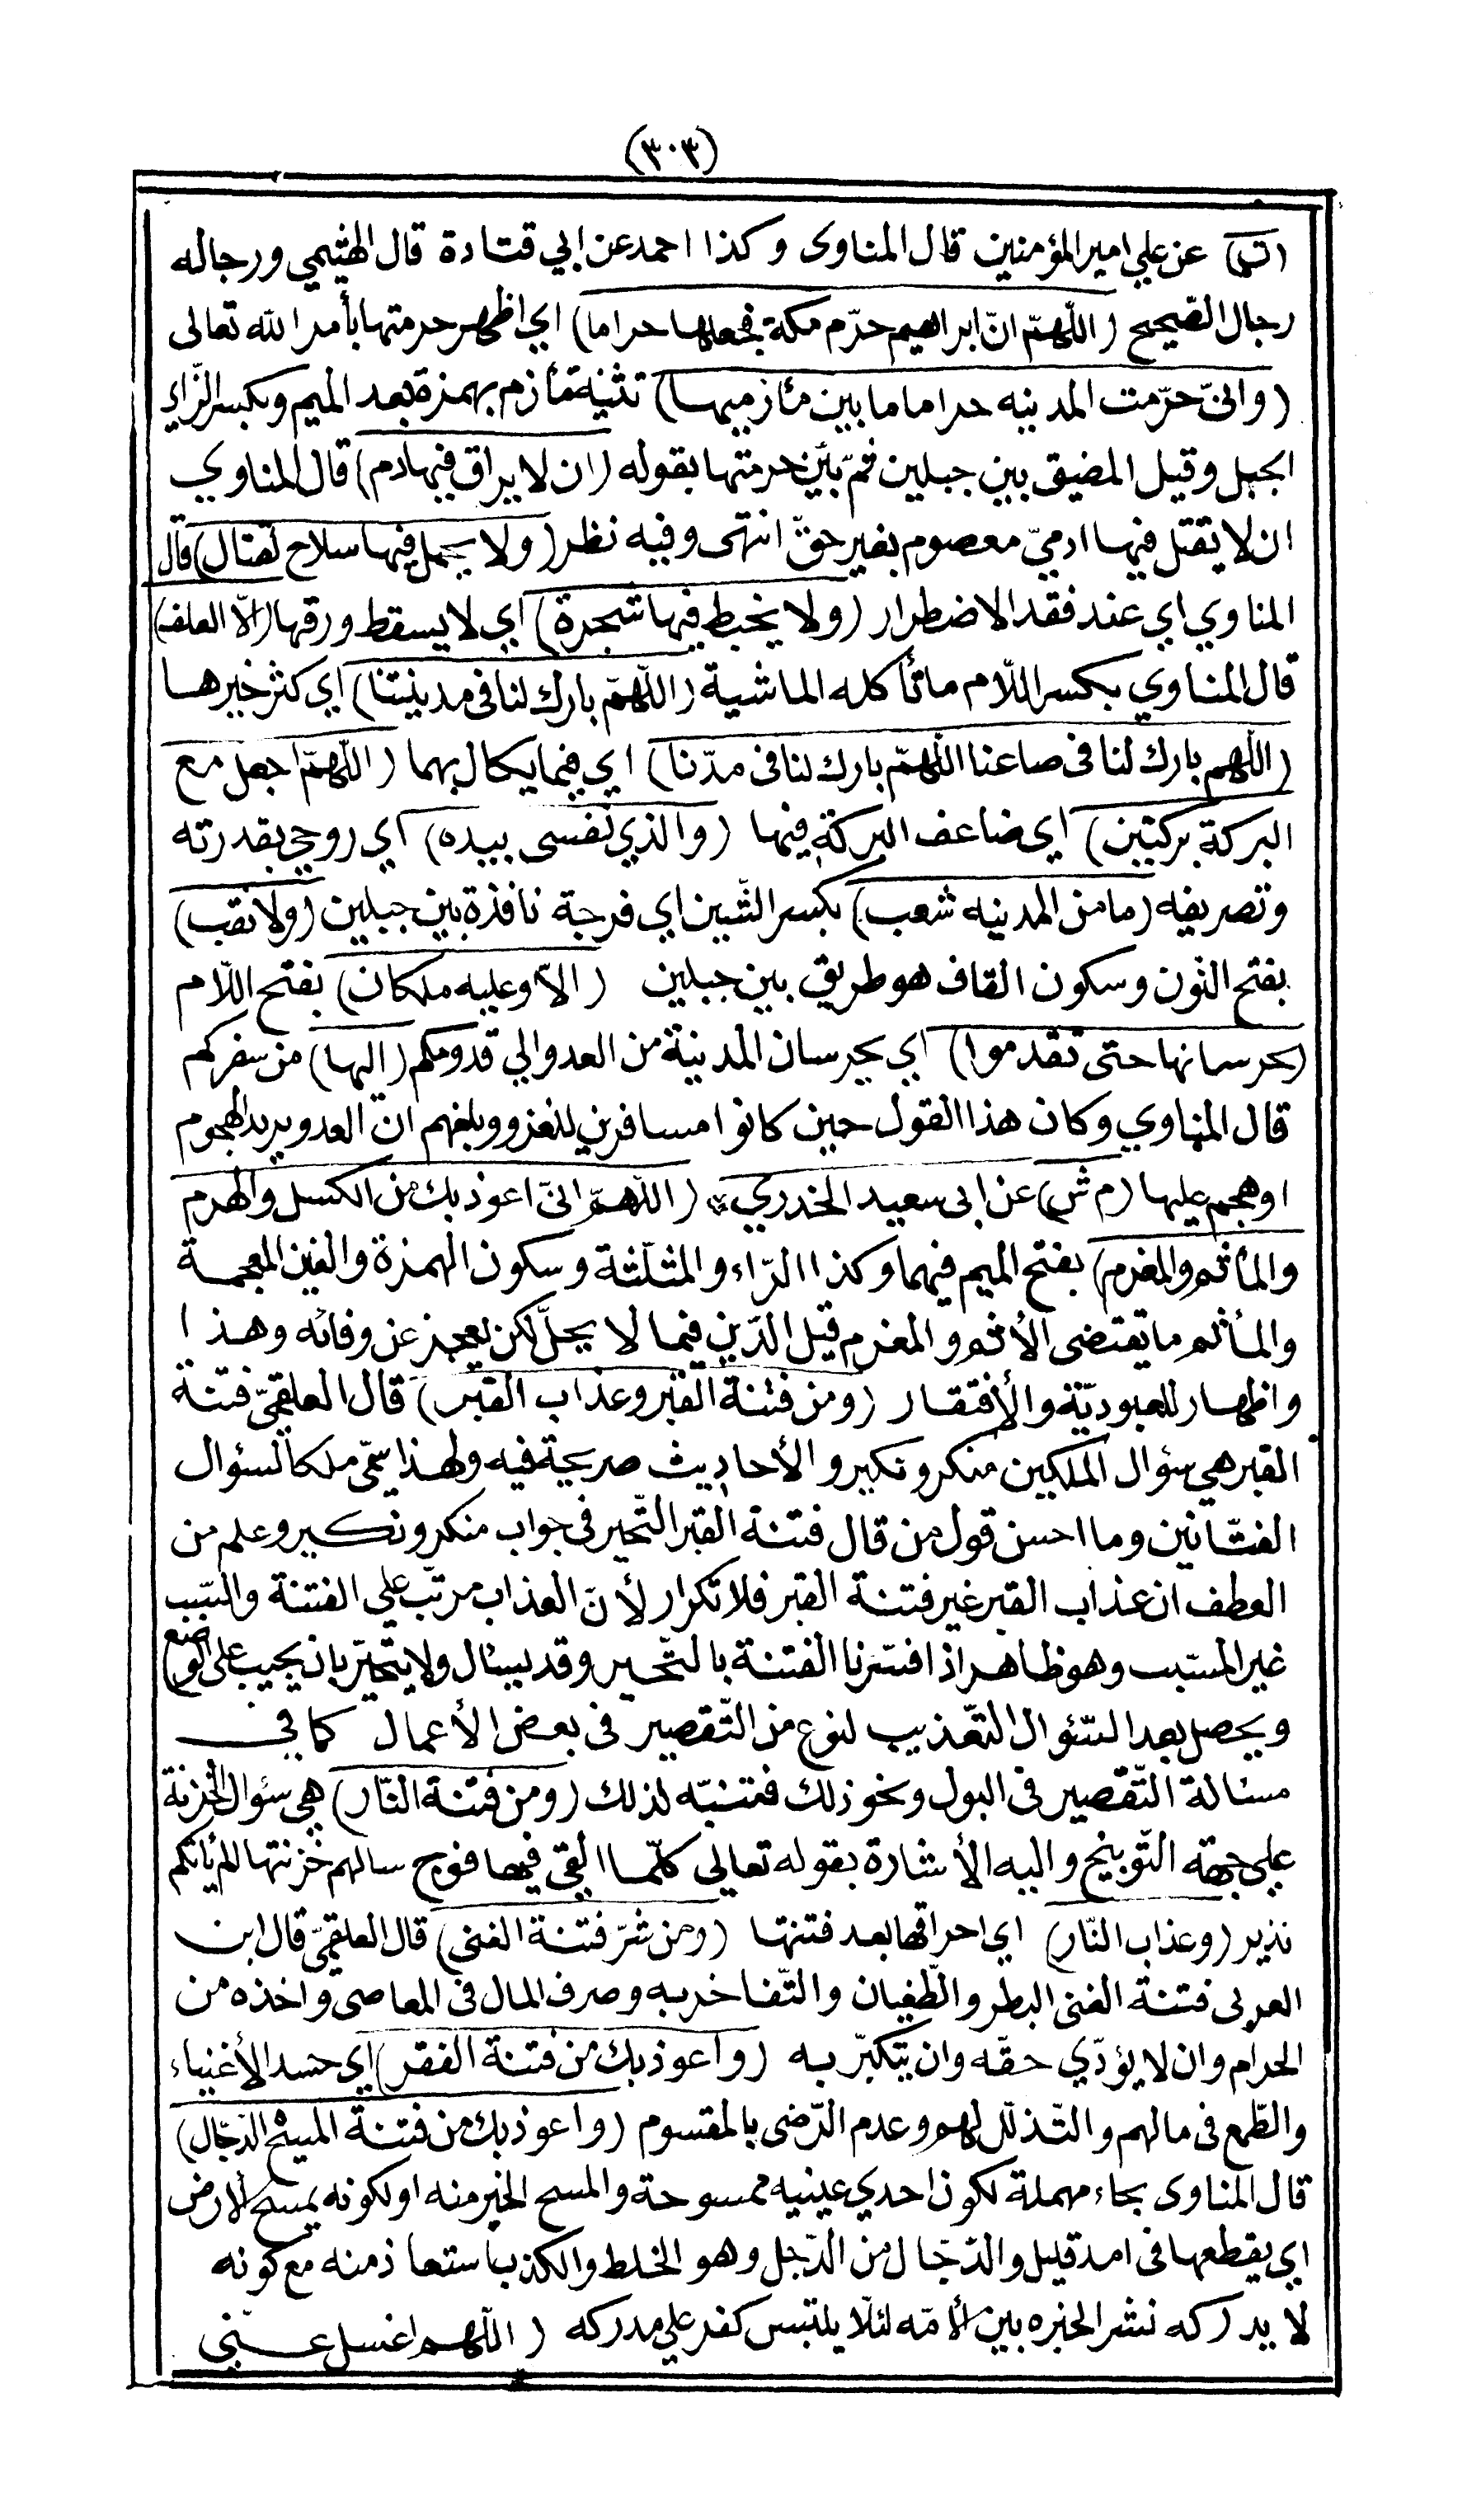 (٣٠٣)
(ت) عن علي امير المؤمنين قال المناوى وكذا احمد عن ابي قتادة قال الهيثمي ورجاله
رجال الصّحيح (اللّهمّ انّ ابراهيم حرّم مكة فجعلها حراما) اي اظهر حرمتها بأمر الله تعالى
(وانّى حرّمت المدينه حراما ما بين مأزميها) تثنية مأزم بهمزة بعد الميم وبكسر الزّاء
الجبل وقيل المضيق بين جبلين ثمّ بيّن حرمتها بقوله (ان لا يراق فيها دم) قال المناوي
ان لا تقتل فيها ادميّ معصوم بغير حقّ انتهى وفيه نظر (ولا يحمل فيها سلاح لقتال) قال
المناوي اي عند فقد الاضطرار (ولا يخبط فيها شجرة) اي لا يسقط ورقها (الّا العلف)
قال المناوي بكسر اللّام ما تأكله الماشية (اللّهمّ بارك لنا فى مدينتنا) اي كثر خيرها
(اللّهم بارك لنا فى صاعنا اللّهمّ بارك لنا فى مدّنا) اي فيما يكال بهما (اللّهمّ اجعل مع
البركة بركتين) اي ضاعف البركة فيها (والذي نفسى بيده) اي روحي بقدرته
وتصريفه (ما من المدينه شعب) بكسر الشّين اي فرجة نافذة بين جبلين (ولا نقب)
بفتح النّون وسكون القاف هو طريق بين جبلين (الاّ وعليه ملكان) بفتح اللّام
(يحرسانها حتى تقدموا) اي يحرسان المدينة من العدو الي قدومكم (اليها) من سفركم
قال المناوي وكان هذا القول حين كانوا مسافرين للغزو وبلغهم ان العدو يريد الهجوم
او هجم عليها (م ش) عن ابى سعيد الخدري * (اللّهمّ انّى اعوذ بك من الكسل والهرم
والمأثم والمغرم) بفتح الميم فيهما وكذا الرّاء والمثلّثة وسكون الهمزة والغين المعجمة
والمأثم ما يقتضى الأثم والمغرم قيل الدّين فيما لا يحلّ لكن يعجز عن وفائه وهذا
واظهار للعبوديّة والأفتقار (ومن فتنة القبر وعذاب القبر) قال العلقميّ فتنة
القبر هي سؤال الملكين منكر ونكير والأحاديث صريحة فيه ولهذا سمّى ملكا السؤال
الفتّانين وما احسن قول من قال فتنة القبر التّحير فى جواب منكر ونكسير وعلم من
العطف ان عذاب القبر غير فتنة القبر فلا تكرار لأنّ العذاب مرتّب علي الفتنة والسّبب
غير المسبّب وهو ظاهر اذا فسّرنا الفتنة بالتّحير وقد يسئال ولا يتحيّر بان يجيب على الوضع
ويحصل بعد السّئوال التّعذيب لنوع من التّقصير فى بعض الأعمال كما في
مسئالة التّقصير فى البول ونحو ذلك فتنبّه لذلك (ومن فتنة النّار) هي سئوال الخزنة
على جهة التّوبيخ واليه الأشارة بقوله تعالي كلّما القي فيها فوج سالهم خزنتها الم يأتكم
نذير (وعذاب النّار) اي احراقها بعد فتنتها (ومن شرّ فتنة الغنى) قال العلقميّ قال ابن
العربى فتنة الغنى البطر والطّغيان والتّفاخر به وصرف المال فى المعاصى واخذه من
الحرام وان لا يؤدّي حقّه وان يتكبّر به (واعوذ بك من فتنة الفقر) اي حسد الأغنياء
والطّمع فى مالهم والتّذلّل لهم وعدم الرّضى بالمقسوم (واعوذ بك من فتنة المسيح الدّجّال)
قال المناوى بحاء مهملة لكون احدي عينيه ممسوحة والمسح الخير منه او لكونه يمسح الارض
اي يقطعها فى امد قليل والدّجّال من الدّجل وهو الخلط والكذب استعاذ منه مع كونه
لا يدركه نشر الخبره بين الأمّه لئلّا يلتبس كفر علي مدركه (اللّهم اغسل عنّي